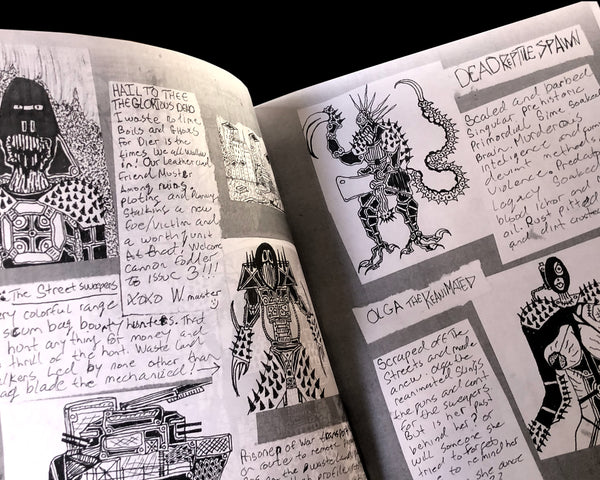 HAIL TO THEE
THE GLORIOUS DEAD
I waste no time
Boils and
For Dier is the
times. We all wallow
in! Our Leather clad
Friend Muster
Among ruins,
ploting and Planning
Stalking a new
foe/victim and
a worthy unit
At that! Welcome
cannon fodder
To ISSUE 3!!!
XOXO W. master
The Street sweepers
very colorful range
scum bag bounty hunters. That
hunt anything for money and
thrill of the hunt. Waste land
Led by none other than
blade the mechanized!
Prisoner of war transport
on route to remote
the wasteland
high profile
DEAD REPTILE SPAWN
Scaled and barbed
Singular prehistoric
Primordial Slime Soaked
Brain. Murderous
intelligence and
deviant methods
Violence. Predatory
Legacy Soaked
blood ichor and
oil. Rust pitted
and dirt crusted
OLGA THE REANIMATED
Scraped off the
Streets and made
anew. Olga the
reanimated Slings
the guns and
for the sweepers.
But is her past
behind her? or
will someone she
tried to forget
to remind her
she once